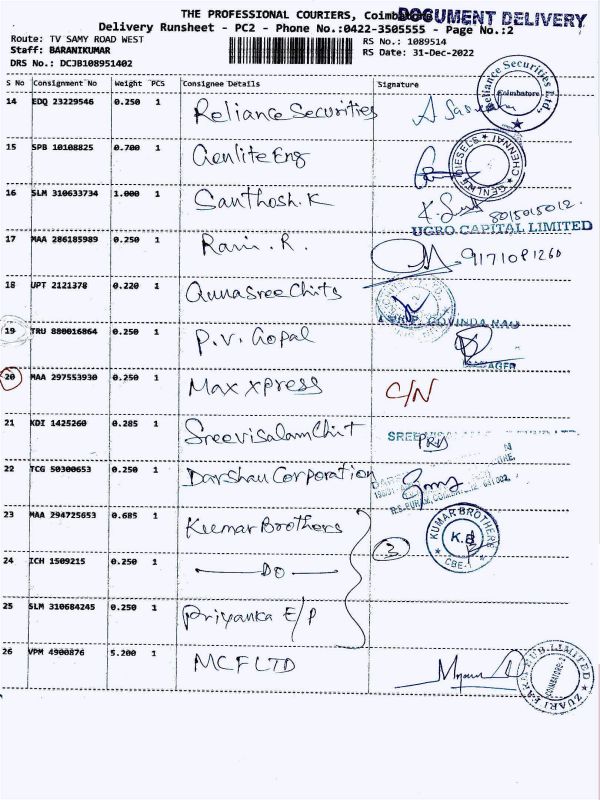 THE PROFESSIONAL COURIERS, Coimbatore
DOCUMENT DELIVERY
Delivery Runsheet - PC2 - Phone No.:0422-3505555 - Page No.:2
Route: TV SAMY ROAD WEST
RS No.: 1089514
Staff: BARANIKUMAR
RS Date: 31-Dec-2022
DRS No.: DCJB108951402
S No Consignment No Weight PCS Consignee Details Signature
14 EDQ 23229546 0.250 1 Reliance Securities
Reliance Securities Ltd., Coimbatore
15 SPB 10108825 0.700 1 Genlite Eng
DIESELS CHENNAI
16 SLM 310633734 1.000 1 Santhosh.K
8015015012.
UGRO CAPITAL LIMITED
17 MAA 286185989 0.250 1 Ram.R.
9171081260
18 UPT 2121378 0.220 1 Gunasree Chits
GOVINDA RAO
19 TRU 880016864 0.250 1 P.V. Gopal
20 MAA 297553930 0.250 1 Max xpress C/N
21 KDI 1425260 0.285 1 Sreevisalam Chit
SREE
22 TCG 50300653 0.250 1 Darshan Corporation
23 MAA 294725653 0.685 1 Kumar Brothers
KUMAR BROTHERS K.B CBE-1
3
24 ICH 1509215 0.250 1 DO
25 SLM 310684245 0.250 1 Priyanka E/P
26 VPM 4900876 5.200 1 MCF LTD
ZUARI FARM HUB LIMITED COIMBATORE-2